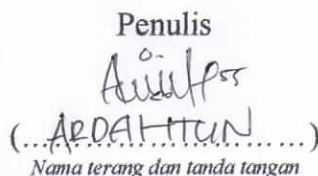 Penulis
(...ARDAHTUN...)
Nama terang dan tanda tangan